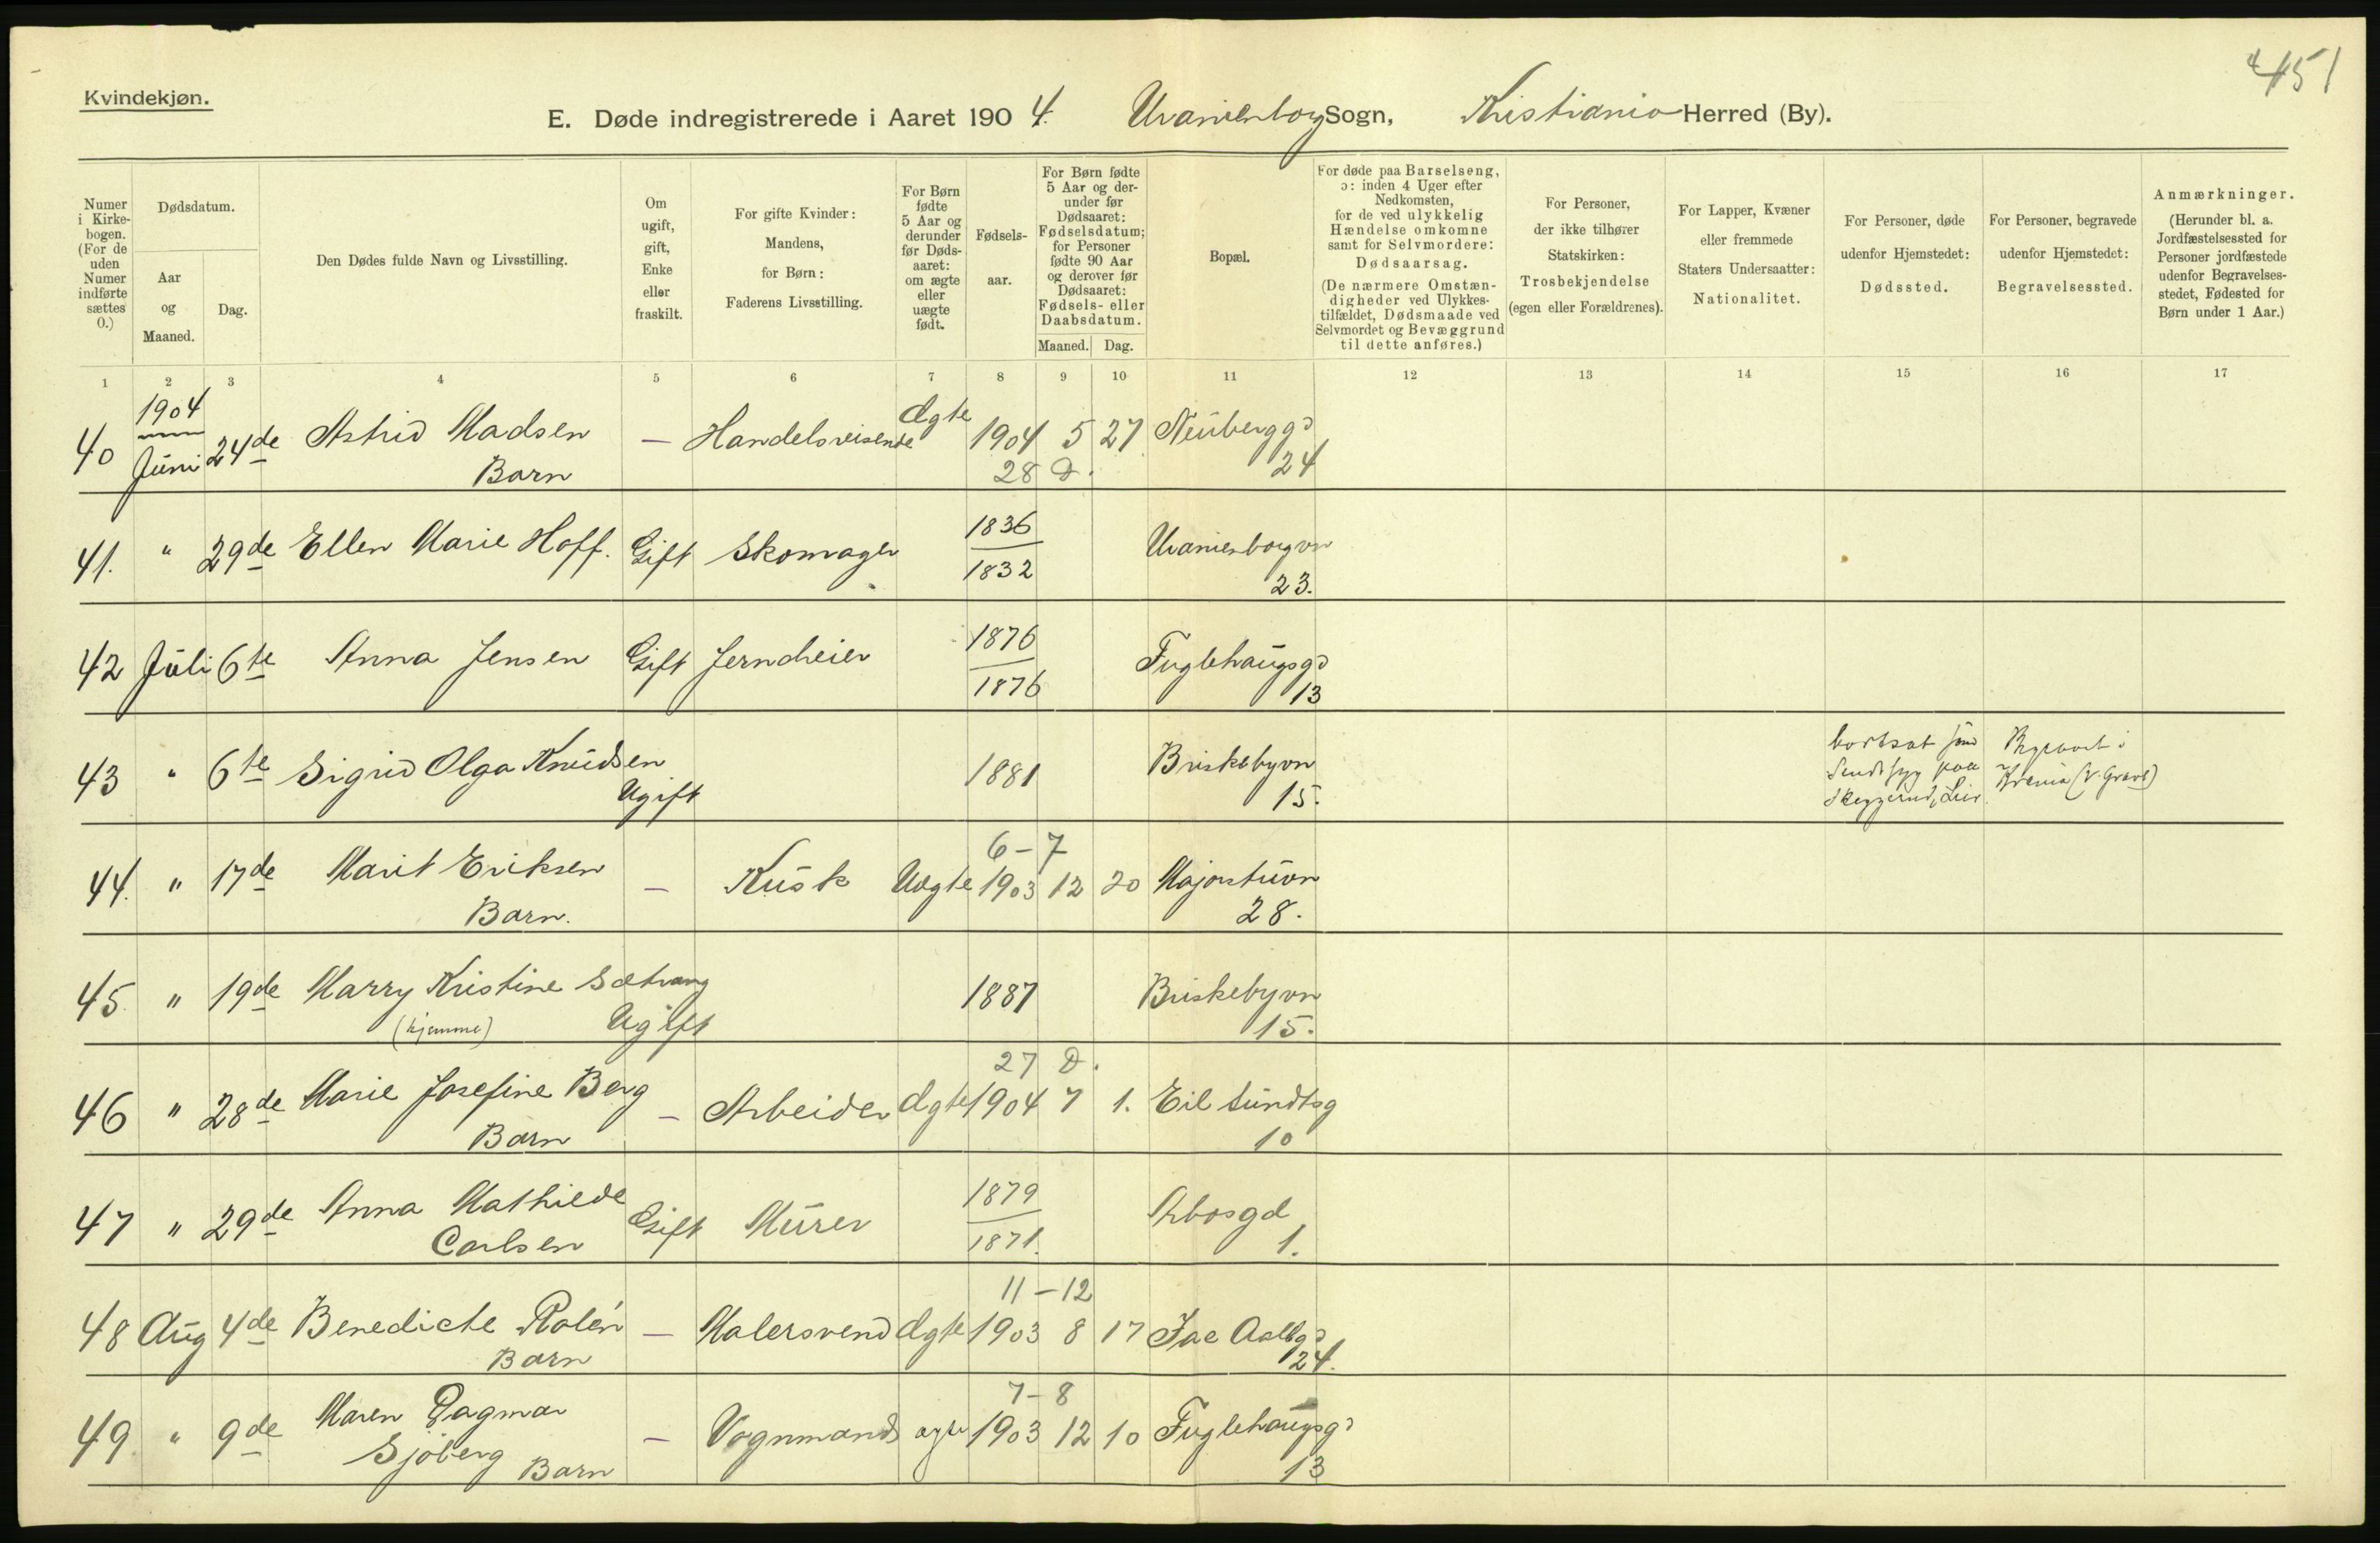 451
Kvindekjøn.
E. Døde indregistrerede i Aaret 1904. Uranienborg Sogn, Kristiania Herred (By).
Numer i Kirkebogen. (For de uden Numer indførte sættes 0.)
Dødsdatum.
Aar og Maaned.
Dag.
Den Dødes fulde Navn og Livsstilling.
Om ugift, gift, Enke eller fraskilt.
For gifte Kvinder: Mandens, for Børn: Faderens Livsstilling.
For Børn fødte 5 Aar og derunder før Dødsaaret: om ægte eller uægte født.
Fødselsaar.
For Børn fødte 5 Aar og derunder før Dødsaaret: Fødselsdatum; for Personer fødte 90 Aar og derover før Dødsaaret: Fødsels- eller Daabsdatum.
Maaned. Dag.
Bopæl.
For døde paa Barselseng, ɔ: inden 4 Uger efter Nedkomsten, for de ved ulykkelig Hændelse omkomne samt for Selvmordere: Dødsaarsag. (De nærmere Omstændigheder ved Ulykkestilfældet, Dødsmaade ved Selvmordet og Bevæggrund til dette anføres.)
For Personer, der ikke tilhører Statskirken: Trosbekjendelse (egen eller Forældrenes).
For Lapper, Kvæner eller fremmede Staters Undersaatter: Nationalitet.
For Personer, døde udenfor Hjemstedet: Dødssted.
For Personer, begravede udenfor Hjemstedet: Begravelsessted.
Anmærkninger. (Herunder bl. a. Jordfæstelsessted for Personer jordfæstede udenfor Begravelsesstedet, Fødested for Børn under 1 Aar.)
1 2 3 4 5 6 7 8 9 10 11 12 13 14 15 16 17
1904
40 Juni 24de Astrid Madsen — Handelsreisende Ægte 1904 5 27 Neuberggd
Barn 28 D. 24
41. " 29de Ellen Marie Hoff. Gift Skomager 1836 Uranienborgvn
1832 23.
42 Juli 6te Anna Jensen Gift Jerndreier 1876 Fuglehaugsgd
1876 13
43 " 6te Sigrid Olga Knudsen 1881 Briskebyvn
Ugift 15.
bortsat som
Sindssyg paa
Skeggerud, Lier.
Begravet i
Krania (V. Gravl)
6-7
44. " 17de Marit Eriksen — Kusk Uægte 1903 12 20 Majorstuvn
Barn. 28.
45 " 19de Marry Kristine Sætrang 1887 Briskebyvn
(hjemme) Ugift 15.
27 D.
46 " 28de Marie Josefine Berg — Arbeider Ægte 1904 7 1. Eil Sundtsg
Barn 10
47 " 29de Anna Mathilde Gift Murer 1879 Arbosgd
Carlsen 1871. 1.
11-12
48 Aug 4de Benedicte Rolén — Malersvend Ægte 1903 8 17 Jac Aallsgd
Barn 24.
7-8
49 " 9de Maren Dagmar — Vognmand ægte 1903 12 10 Fuglehaugsgd
Sjöberg Barn 13